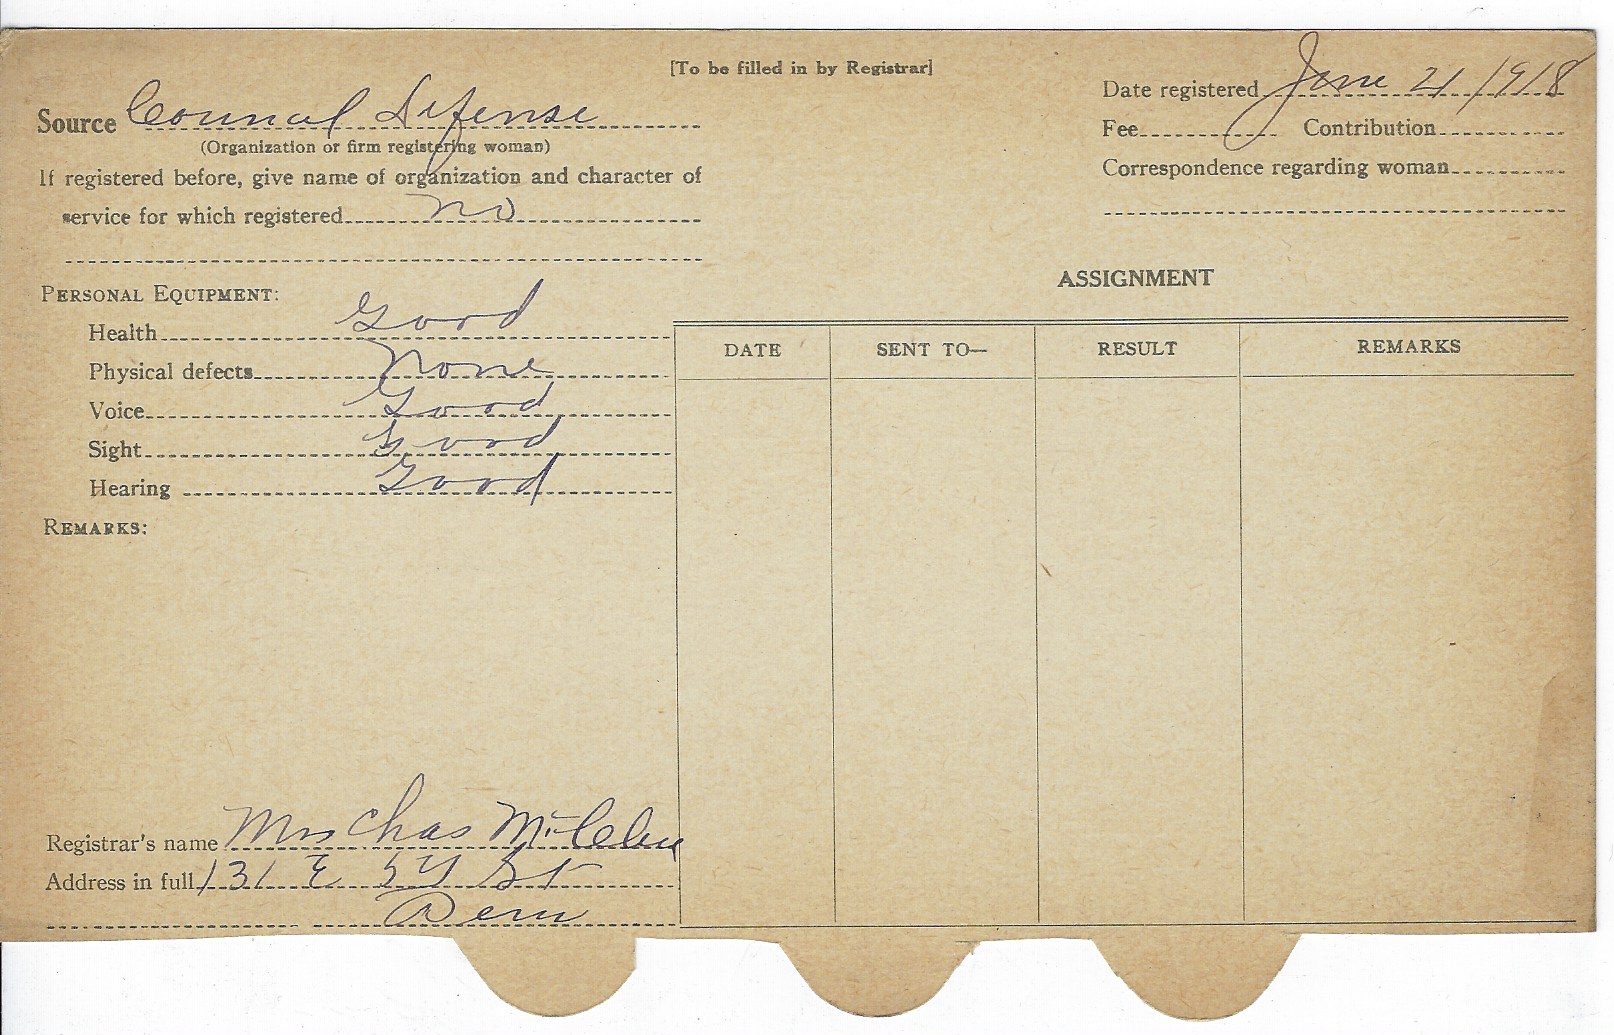 [To be filled in by Registrar]
Date registered June 21 1918
Source Council Defense
(Organization or firm registering woman)
Fee Contribution
If registered before, give name of organization and character of
service for which registered no
Correspondence regarding woman
ASSIGNMENT
PERSONAL EQUIPMENT:
Health Good
Physical defects None
Voice Good
Sight Good
Hearing Good
DATE SENT TO— RESULT REMARKS
REMARKS:
Registrar's name Mrs Chas
Address in full 131 E St